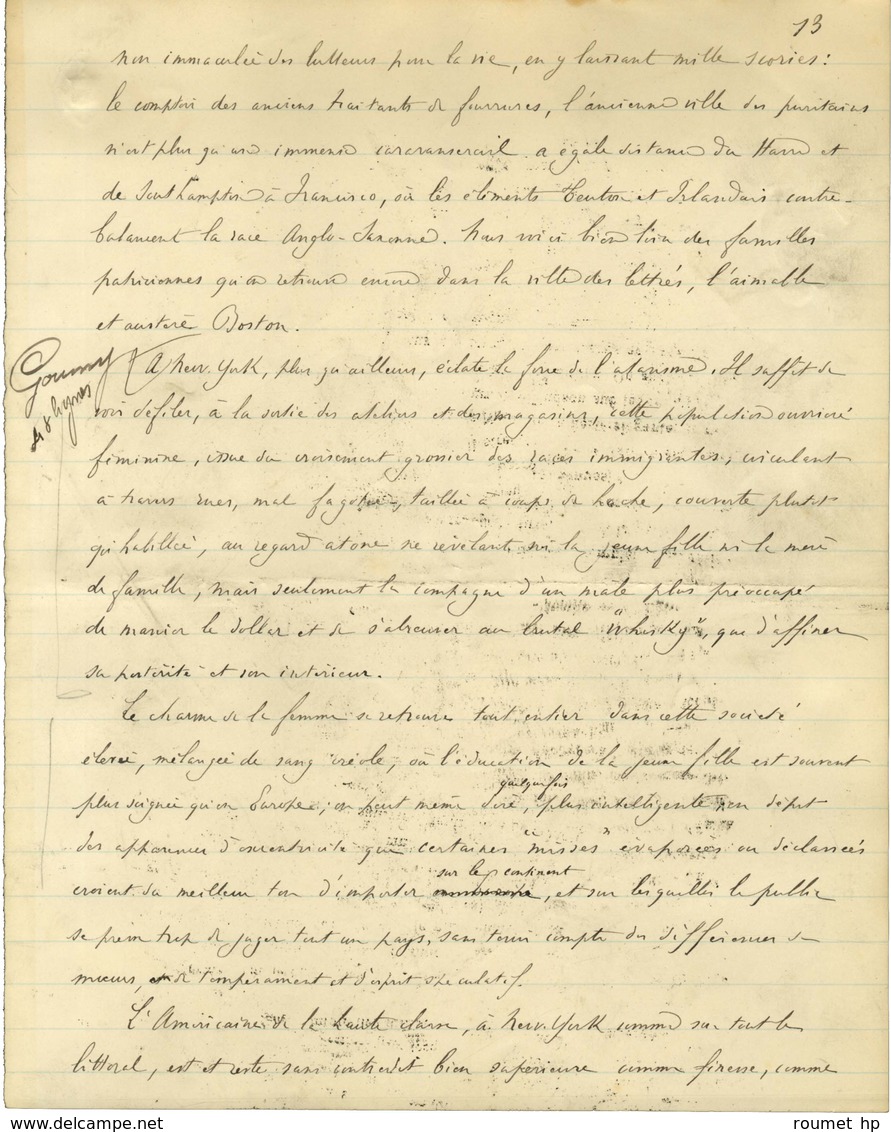 13
non immaculée des lutteurs pour la vie, en y laissant mille scories :
le comptoir des anciens traitants de fourrures, l'ancienne ville des puritains
n'est plus qu'un immense caravansérail a égale distance du Havre et
de Southampton à Francisco, où les éléments Teuton et Irlandais contre-
balancent la race Anglo-Saxonne. Nous voici bien loin des familles
patriciennes qu'on retrouve encore dans la ville des lettrés, l'aimable
et austère Boston.
A New-York, plus qu'ailleurs, éclate la force de l'atavisme. Il suffit de
voir défiler, à la sortie des ateliers et des magasins, cette population ouvrière
féminine, issue du croisement grossier des races immigrantes, circulant
à travers rues, mal fagotée, taillée à coups de hache, couverte plutôt
qu'habillée, au regard atone ne révélant ni la jeune fille ni la mère
de famille, mais seulement la compagne d'un mâle plus préoccupé
de manier le dollar et de s'abreuver au brutal "Whisky", que d'affiner
sa postérité et son intérieur.
Le charme de la femme se retrouve tout entier dans cette société
élevée, mélangée de sang créole, où l'éducation de la jeune fille est souvent
quelquefois
plus soignée qu'en Europe ; on peut même dire, plus intelligente en dépit
des apparences d'excentricité que certaines "misses" évaporées ou déclassées
sur le continent
croient du meilleur ton d'importer , et sur lesquelles le public
se presse trop de juger tout un pays, sans tenir compte des différences de
mœurs, de tempérament et d'esprit spéculatif.
L'Américaine de la haute classe, à New-York comme sur tout le
littoral, est et reste sans contredit bien supérieure comme finesse, comme
8 lignes
roumet hp